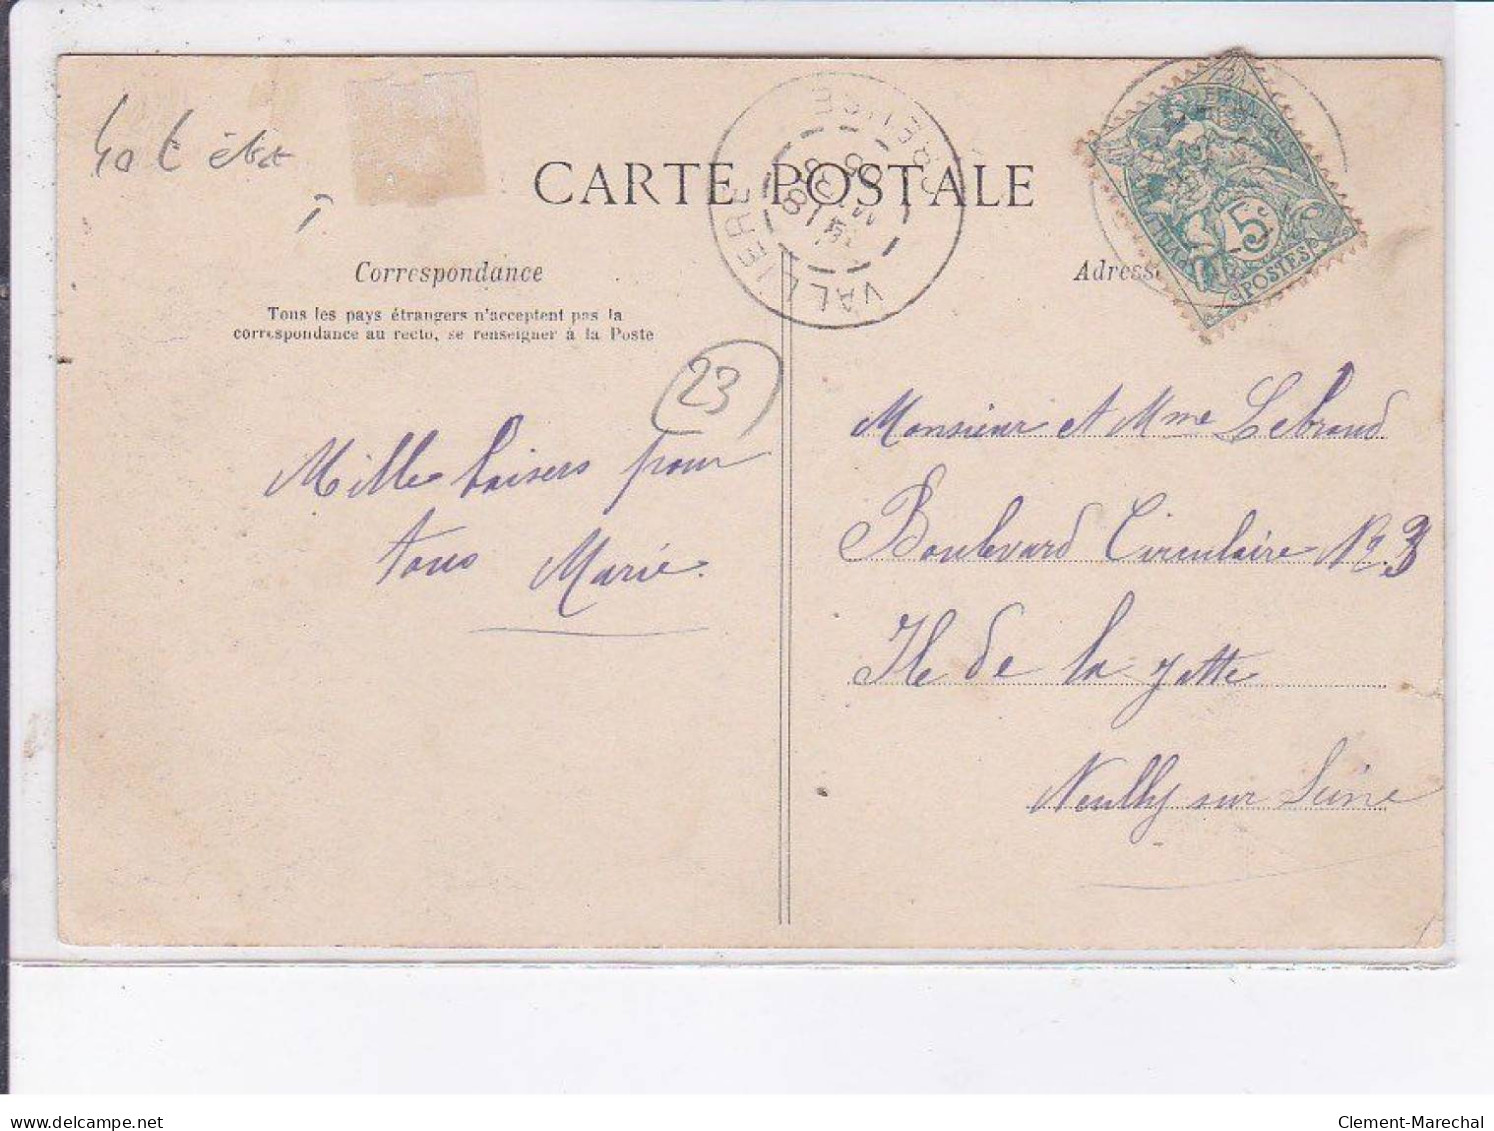 CARTE POSTALE
Correspondance
Tous les pays étrangers n'acceptent pas la
correspondance au recto, se renseigner à la Poste
VALLIERE
CREUSE
5c
POSTES
23
Mille baisers pour
tous Marie.
Monsieur et Mme Lebraud
Boulevard Circulaire No 3
Ile de la Jatte
Neuilly sur Seine
www.delcampe.net
Clement-Marechal